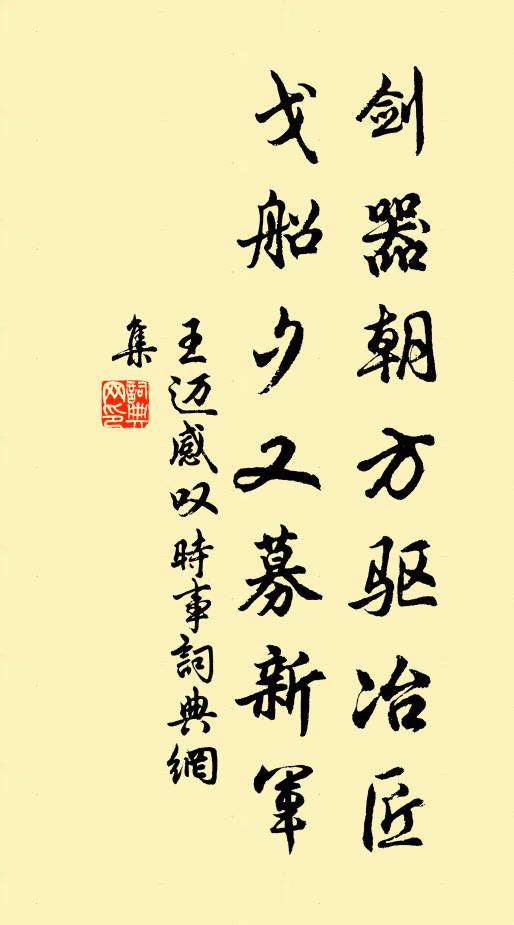 剑器朝方驱冶匠
戈船夕又募新军
王迈感叹时事詞典網
集
詞典
网印